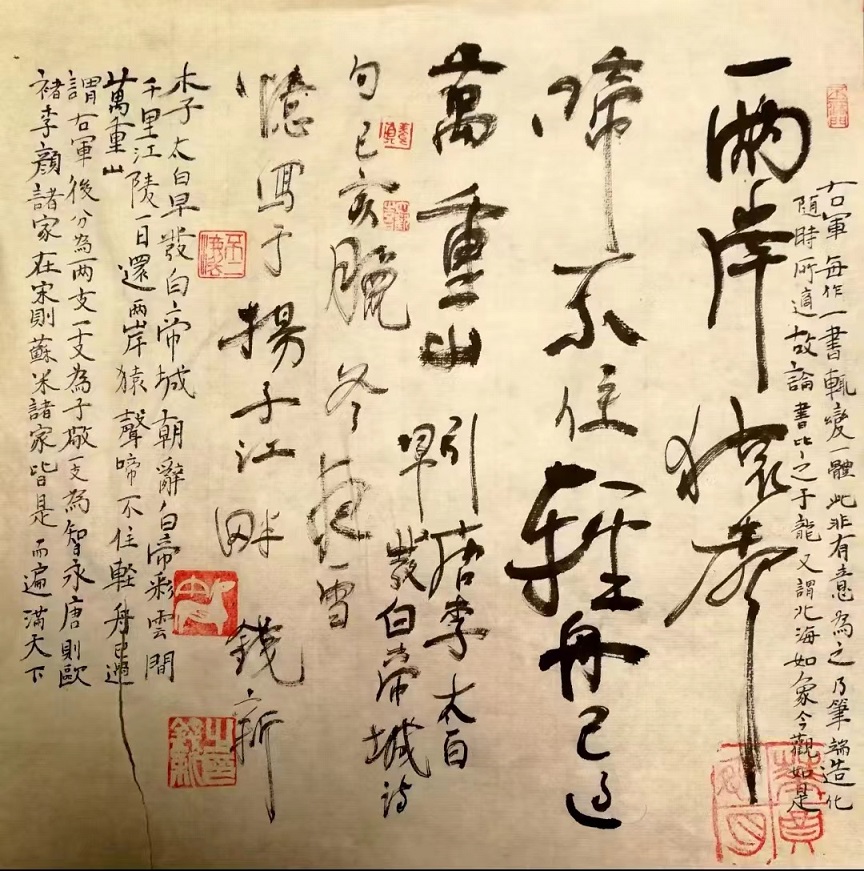 右軍每作一書輒變一體此非有意為之乃筆端造化
隨時所適故論書比之于龍又謂北海如象今觀如是
兩岸猿聲
啼不住輕舟已過
萬重山
引唐李太白
早發白帝城詩
句己亥臘冬雪
憶寫于揚子江畔 錢新
木子太白早發白帝城朝辭白帝彩雲間
千里江陵一日還兩岸猿聲啼不住軽舟已過
萬重山
謂右軍後分為兩支一支為子敬一支為智永唐則歐
褚李顏諸家在宋則蘇米諸家皆是而遍滿天下